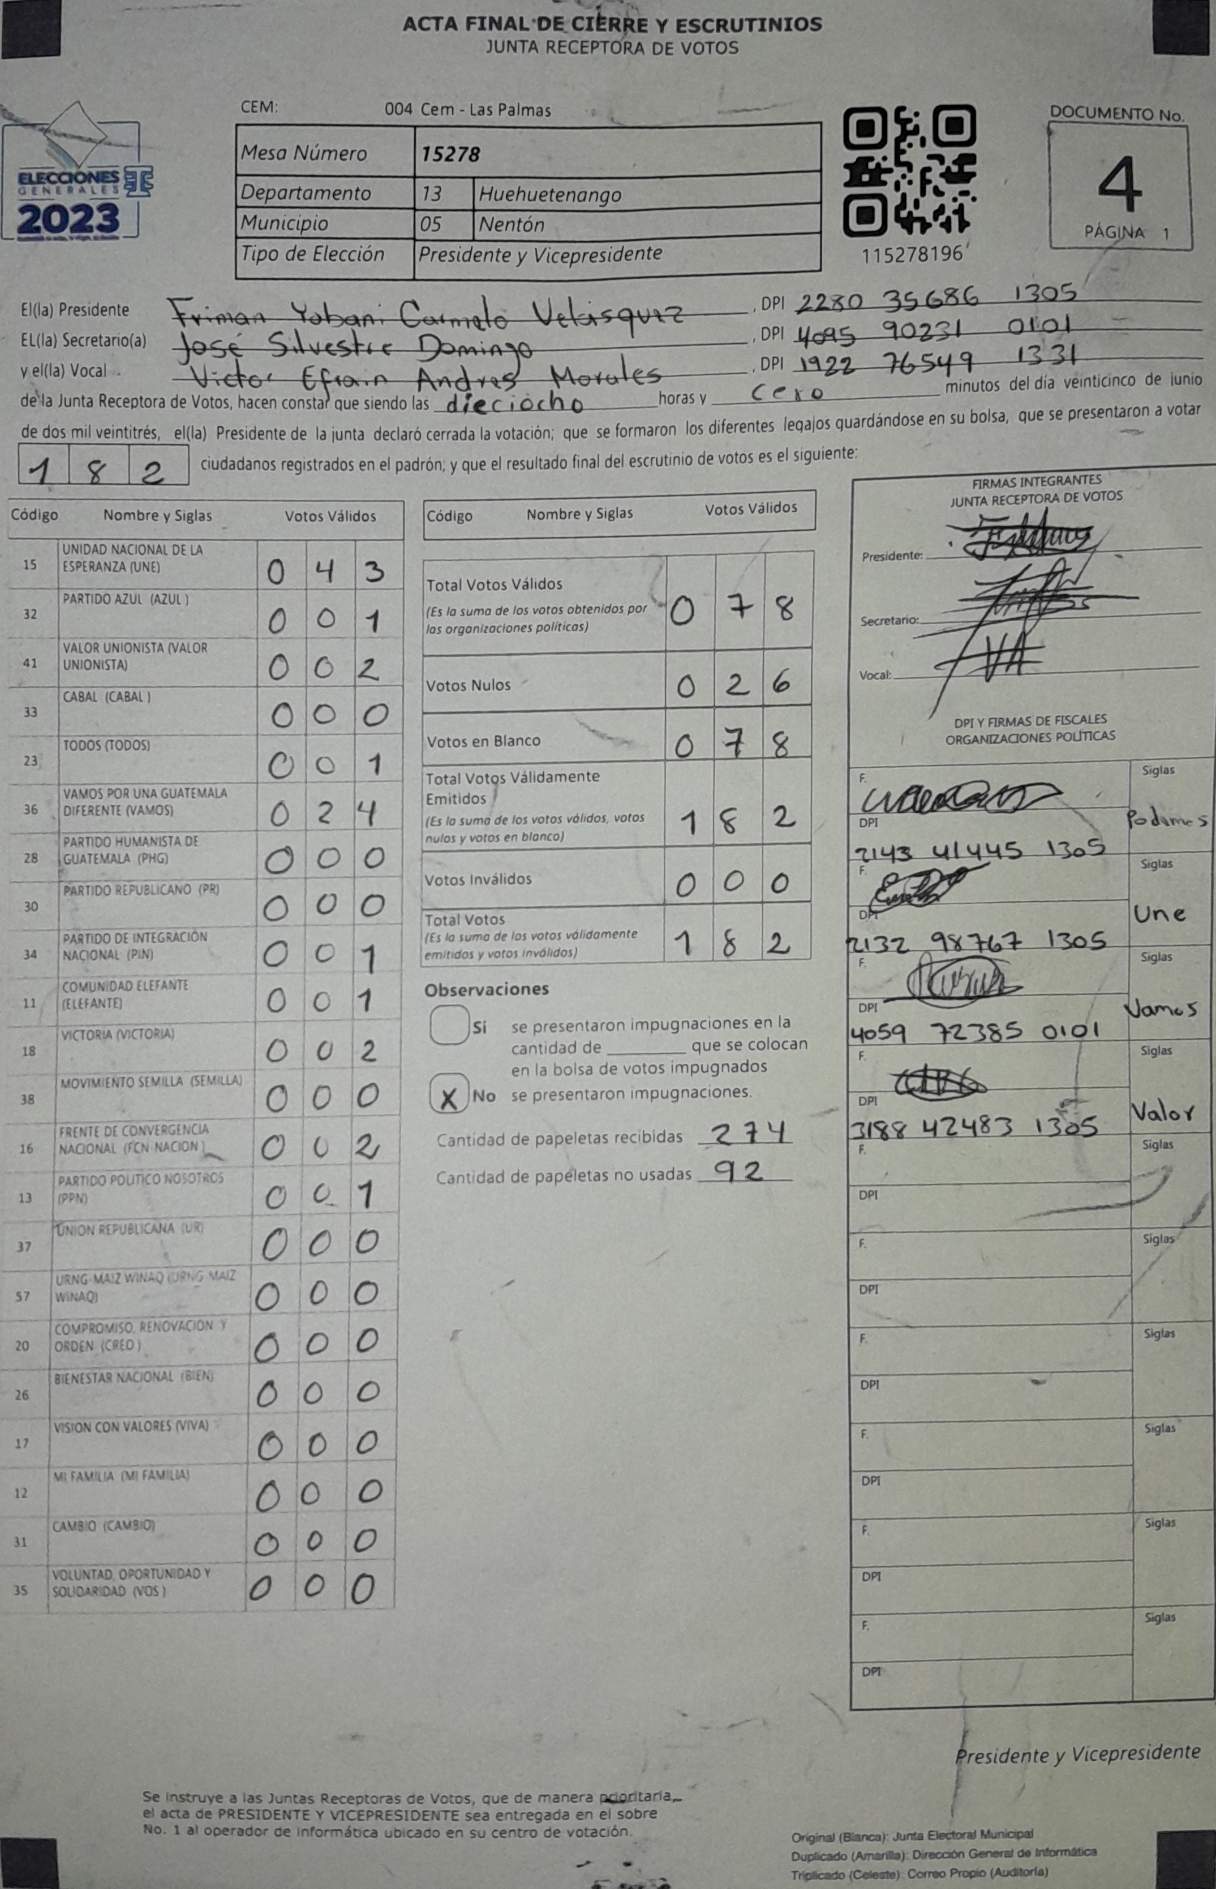 ACTA FINAL DE CIERRE Y ESCRUTINIOS
JUNTA RECEPTORA DE VOTOS
CEM: 004 Cem - Las Palmas
ELECCIONES
GENERALES
2023
Mesa Número 15278
Departamento 13 Huehuetenango
Municipio 05 Nentón
Tipo de Elección Presidente y Vicepresidente
115278196
DOCUMENTO No.
4
PÁGINA 1
El(la) Presidente Friman Yobani Carmelo Velásquez, DPI 2280 35686 1305
EL(la) Secretario(a) José Silvestre Domingo, DPI 4095 90231 0101
y el(la) Vocal Victor Efrain Andres Morales, DPI 1922 76549 1331
de la Junta Receptora de Votos, hacen constar que siendo las dieciocho horas y cero minutos del día veinticinco de junio
de dos mil veintitrés, el(la) Presidente de la junta declaró cerrada la votación; que se formaron los diferentes legajos guardándose en su bolsa, que se presentaron a votar
1 8 2 ciudadanos registrados en el padrón; y que el resultado final del escrutinio de votos es el siguiente:
Código Nombre y Siglas Votos Válidos
15 UNIDAD NACIONAL DE LA ESPERANZA (UNE) 0 4 3
32 PARTIDO AZUL (AZUL ) 0 0 1
41 VALOR UNIONISTA (VALOR UNIONISTA) 0 0 2
33 CABAL (CABAL ) 0 0 0
23 TODOS (TODOS) 0 0 1
36 VAMOS POR UNA GUATEMALA DIFERENTE (VAMOS) 0 2 4
28 PARTIDO HUMANISTA DE GUATEMALA (PHG) 0 0 0
30 PARTIDO REPUBLICANO (PR) 0 0 0
34 PARTIDO DE INTEGRACIÓN NACIONAL (PIN) 0 0 1
11 COMUNIDAD ELEFANTE (ELEFANTE) 0 0 1
18 VICTORIA (VICTORIA) 0 0 2
38 MOVIMIENTO SEMILLA (SEMILLA) 0 0 0
16 FRENTE DE CONVERGENCIA NACIONAL (FCN NACION ) 0 0 2
13 PARTIDO POLITICO NOSOTROS (PPN) 0 0 1
37 UNION REPUBLICANA (UR) 0 0 0
57 URNG-MAIZ WINAQ (URNG-MAIZ WINAQ) 0 0 0
20 COMPROMISO, RENOVACION Y ORDEN (CREO ) 0 0 0
26 BIENESTAR NACIONAL (BIEN) 0 0 0
17 VISION CON VALORES (VIVA) 0 0 0
12 MI FAMILIA (MI FAMILIA) 0 0 0
31 CAMBIO (CAMBIO) 0 0 0
35 VOLUNTAD, OPORTUNIDAD Y SOLIDARIDAD (VOS ) 0 0 0
Código Nombre y Siglas Votos Válidos
Total Votos Válidos
(Es la suma de los votos obtenidos por
las organizaciones políticas) 0 7 8
Votos Nulos 0 2 6
Votos en Blanco 0 7 8
Total Votos Válidamente
Emitidos
(Es la suma de los votos válidos, votos
nulos y votos en blanco) 1 8 2
Votos Inválidos 0 0 0
Total Votos
(Es la suma de los votos válidamente
emitidos y votos inválidos) 1 8 2
Observaciones
Si se presentaron impugnaciones en la
cantidad de ________ que se colocan
en la bolsa de votos impugnados
X No se presentaron impugnaciones.
Cantidad de papeletas recibidas 274
Cantidad de papeletas no usadas 92
FIRMAS INTEGRANTES
JUNTA RECEPTORA DE VOTOS
Presidente:
Secretario:
Vocal:
DPI Y FIRMAS DE FISCALES
ORGANIZACIONES POLÍTICAS
F. Siglas
DPI Podemos
2143 41445 1305
F. Siglas
DPI Une
2132 98767 1305
F. Siglas
DPI Vamos
4059 72385 0101
F. Siglas
DPI Valor
3188 42483 1305
F. Siglas
DPI
F. Siglas
DPI
F. Siglas
DPI
F. Siglas
DPI
F. Siglas
DPI
F. Siglas
DPI
Presidente y Vicepresidente
Se instruye a las Juntas Receptoras de Votos, que de manera prioritaria,
el acta de PRESIDENTE Y VICEPRESIDENTE sea entregada en el sobre
No. 1 al operador de informática ubicado en su centro de votación.
Original (Blanca): Junta Electoral Municipal
Duplicado (Amarilla): Dirección General de Informática
Triplicado (Celeste): Correo Propio (Auditoría)